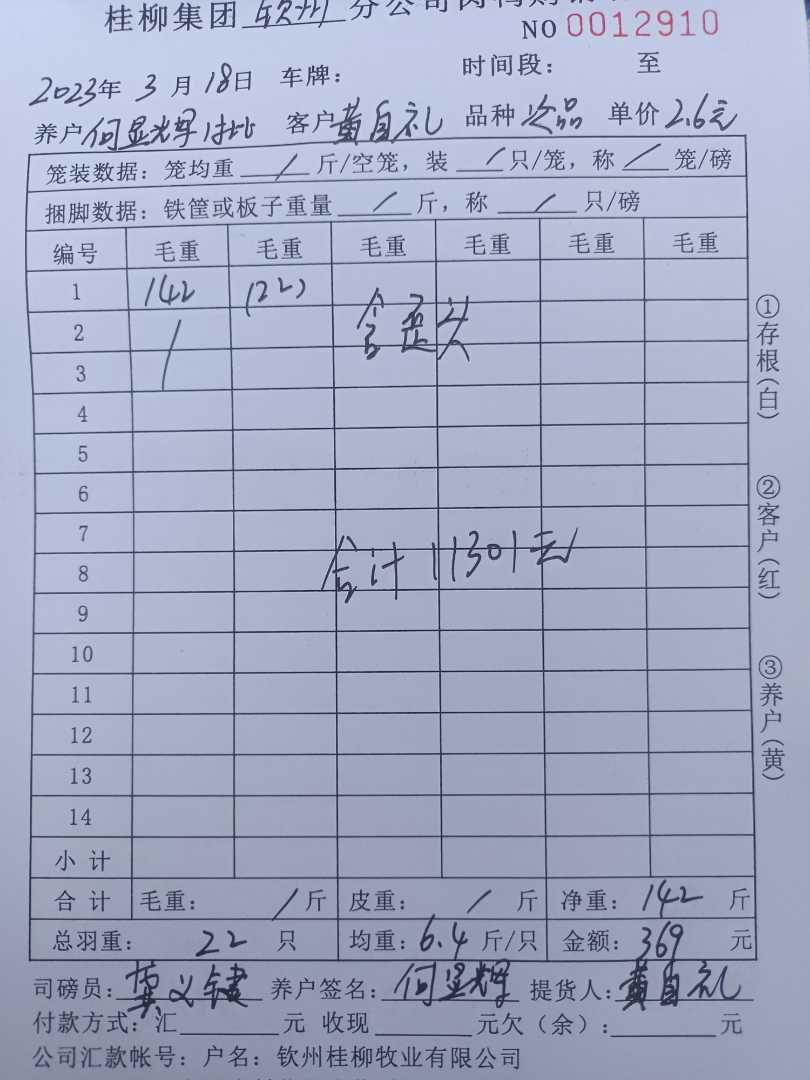 桂柳集团 钦州 分公司肉鸭购销
NO 0012910
2023年 3 月 18日 车牌： 时间段： 至
养户 何显光辉 客户 黄自礼 品种 次品 单价 2.6元
笼装数据：笼均重 / 斤/空笼，装 / 只/笼，称 / 笼/磅
捆脚数据：铁筐或板子重量 / 斤，称 / 只/磅
编号 毛重 毛重 毛重 毛重 毛重 毛重
1 142 (22)
2 含歪头
3
4
5
6
7
8 合计 11301元
9
10
11
12
13
14
小 计
合 计 毛重： / 斤 皮重： / 斤 净重： 142 斤
总羽重： 22 只 均重： 6.4 斤/只 金额： 369 元
司磅员： 义 养户签名： 何显辉 提货人： 黄自礼
付款方式：汇 元 收现 元欠（余）： 元
公司汇款帐号：户名：钦州桂柳牧业有限公司
①存根（白）
②客户（红）
③养户（黄）